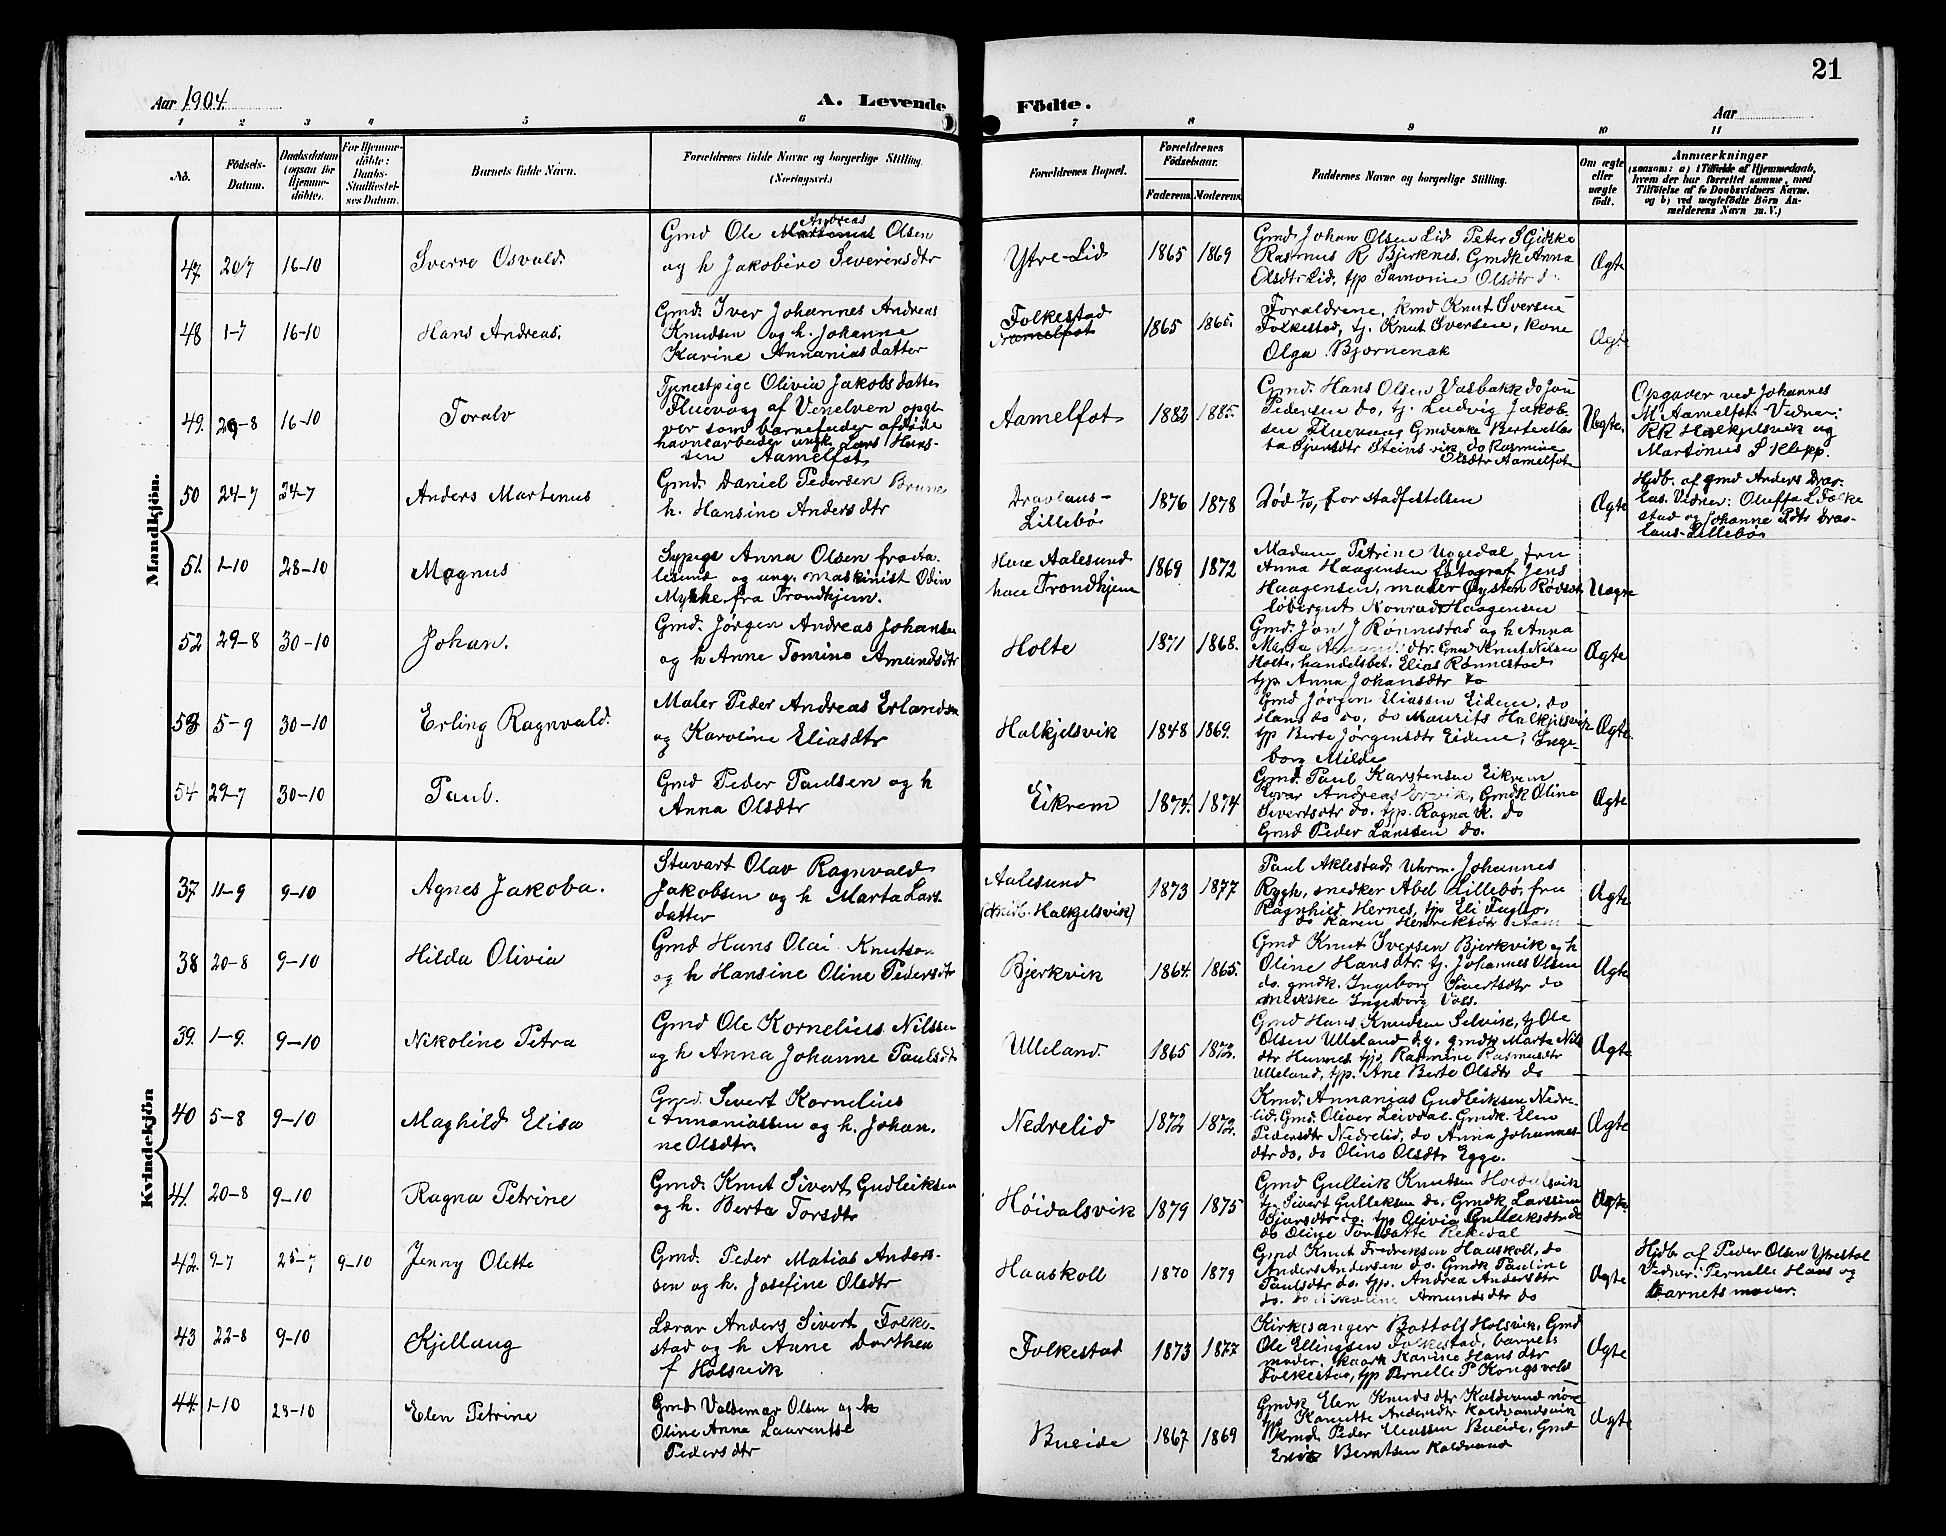 21
Aar 1904.
A. Levende Födte.
Aar
1 2 3 4 5 6 7 8 9 10 11
No.
Födsels-Datum.
Daabsdatum (ogsaa for Hjemmedöbte).
For Hjemmedöbte: Daabs-Stadfæstelses Datum.
Barnets fulde Navn.
Forældrenes fulde Navne og borgerlige Stilling. (Næringsvei.)
Forældrenes Bopæl.
Forældrenes Födselsaar.
Faderens. Moderens.
Faddernes Navne og borgerlige Stilling.
Om ægte eller uægte födt.
Anmærkninger
(saasom: a) i Tilfælde af Hjemmedaab, hvem der har forrettet samme, med Tilföielse af to Daabsvidners Navne, og b) ved uægtefödte Börn Anmelderens Navn m. V.)
Mandkjön.
47 20/7 16-10 Sverre Osvald.
Gmd Ole Andreas Olsen
og h Jakobine Severinsdtr
Ytre-Lid 1865 1869
Gmd. Johan Olsen Lid Peter S Gidske
Rasmus R Bjerknes. Gmdk Anna
Olsdtr Lid, t/p Samoine Olsdtr d
Ægte
48 1-7 16-10 Hans Andreas.
Gmd. Iver Johannes Andreas
Knudsen og h. Johanne
Karine Annanias datter
Folkestad
Aamelfot
1865 1865.
Foraldrene, kmd Knut Iversen
Folkestad, tj. Knut Iversen, kone
Olga Bjørnenak
Ægt
49. 29-8 16-10 Toralv
Tjenestpige Olivia Jakobsdatter
Fluevaag af Venelven opgi-
ver som barnefader afdøde
havnearbeider ungk. Lars Hans-
sen Aamelfot
Aamelfot 1882 1885.
Gmd. Hans Olsen Vasbakk do Jon
Pedersen do, tj. Ludvig Jakob-
sen Fluevaag Gmdenke Berte Ellas
Sjursdtr Steinsvik, do Rasmine
Olsdtr Aamelfot
Uægte.
Opgaver ved Johannes
M Aamelfot. Vidner:
RR Halkjelsvik og
Martinus S Klepp.
50 24-7 24-7 Anders Martinus
Gmd. Daniel Pedersen Brune
h. Hansine Andersdtr
Dravlaus-
Lillebø
1876 1878
Død 2/10, før stadfestelsen
Ægte
Hjdb. af gmd Anders Drav-
laus. Vidner: Oluffa L Folke
stad og Johanne Pdtr Drav-
laus-Lillebø
51. 1-10 28-10 Magnus
Sypige Anna Olsen fra Aa-
lesund og ung. maskinist Odin
Mykke fra Trondhjem.
Hun Aalesund
han Trondhjem
1869 1872
Madam Petrine Uggedal, fru
Anna Haagensen fotograf Jens
Haagensen, maler Øysten Rødset
løbergut Konrad Haagensen
Uægte
52 29-8 30-10 Johan.
Gmd. Jørgen Andreas Johansen
og h Anne Tomine Amundsdtr
Holte 1871 1868.
Gmd. Jon J Rønnestad og h Anna
Marta Amundsdtr. Gmd Knut Nilsen
Holte, handelsbet. Elias Rønnestad
t/p Anna Johansdtr do
Ægte
53 5-9 30-10 Erling Ragnvald.
Maler Peder Andreas Erlandsen
og Karoline Eliasdtr
Halkjelsvik 1848 1869.
Gmd Jørgen Eliassen Eidem, do
Hans do do, do Maurits Halkjelsvik
t/p Berte Jørgensdtr Eidene, Inge-
borg Milde
Ægte.
54 29-7 30-10 Paul.
Gmd Peder Paulsen og h
Anna Olsdtr
Eikrem 1874. 1874
Gmd. Paul Karstensen Eikrem
Kvar Andreas Ervik, Gmdk Oline
Sivertsdtr do. t/p. Ragna K. do
Gmd Peder Lanssen do.
Ægte
Kvindekjön
37 11-9 9-10 Agnes Jakoba.
Stuvart Olav Ragnvald
Jakobsen og h Marta Lars-
datter
Aalesund
(Midb. Halkjelsvik)
1873 1877
Paul Aklestad, Uhrm. Johannes
Rygh, snedker Abel Lillebø, fru
Ragnhild Hernes, t/p Eli Fuglø,
do Karen Henriksdtr Aam
Ægte
38 20-8 9-10 Hilda Olivia
Gmd Hans Olai Knutsen
og h Hansine Oline Pedersdtr
Bjerkvik 1864. 1865.
Gmd Knut Iversen Bjerkvik og h
Oline Hansdtr. tj. Johannes Olsen
do. gmdk. Ingeborg Sivertsdtr do
Ingeborg Vass.
Ægte
39. 1-9. 9-10 Nikoline Petra
Gmd Ole Kornelius Nilssen
og h Anna Johanne Paulsdtr
Ulleland. 1865 1872.
Gmd Hans Knudsen Selvik, tj Ole
Olsen Ulleland d.y. gmdk Marta Nils
dtr Hunnes. t/p Rasmine Rasmusdtr
Ulleland, t/p. Ane Berte Olsdtr do
Ægte
40 5-8 9-10 Maghild Elisa
Gmd. Sivert Kornelius
Annaniassen og h. Johan-
ne Olsdtr.
Nedrelid 1872 1872.
Kmd. Annanias Gudleiksen Nedre-
lid. Gmd. Oliver Leivdal. Gmdk. Elen
Pedersdtr Nedrelid, do Anna Johannes-
dtr do, do Oline Olsdtr Egge.
Ægte
41. 20-8 9-10 Ragna Petrine
Gmd. Knut Sivert Gudleiksen
og h. Berta Torsdtr
Høidalsvik 1879 1875
Gmd Gulleik Knutsen Hoidalsvik
tj. Sivert Gulleksen do, Gmdk Larssine
Sjursdtr do. t/p Olivia Gulleiksdtr do
do Oline Torsdatte Rekedal
Ægte.
42. 9-7 25-7 9-10 Jenny Olette
Gmd. Peder Matias Anders-
sen og h. Josefine Olsdtr
Haaskoll 1870 1879
Gmd Knut Fredriksen Haaskoll, do
Anders Andersen do. Gmdk Pauline
Paulsdtr do. t/p. Andrea Andersdtr
do. do Nikoline Amundsdtr do
Ægte
Hjdb. af Peder Olsen Ytrestøl
Vidner: Pernelle Haas og
barnets moder.
43 22-8 9-10 Kjellaug
Lærar Anders Sivert Folke-
stad og h Anne Dorthea
f Holsvik
Folkestad 1873 1877
Kirkesanger Bottolf Holsvik, Gmd
Ole Ellingsen Folkestad, barnets
moder, kaark Karine Hansdtr
Folkestad, t/p Pernelle P Kongsvold
Ægte
44. 1-10 23-10 Elen Petrine
Gmd Valdemar Olsen og h
Oline Anna Laurentse
Pedersdtr
Bueide 1867 1869
Gmdk Elen Knudsdtr Kaldvand nöre
t/p Kanutte Andersdtr Kaldvandsvik
Kmd. Peder Eliassen Bueide, Gmd
Erik Berntsen Kaldvand
Ægte